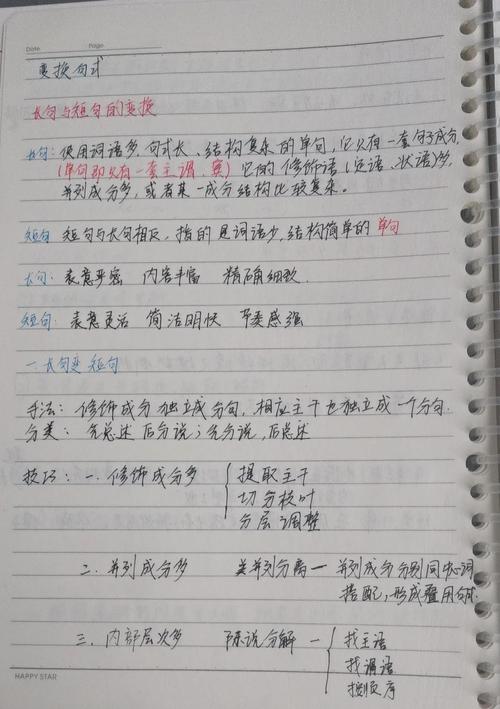 Date Page
变换句式
长句与短句的变换
长句：使用词语多、句式长、结构复杂的单句，它只有一套句子成分，
(单句即只有一套主谓、宾) 它的修饰语(定语、状语)多，
并列成分多，或者某一成分结构比较复杂。
短句 短句与长句相反，指的是词语少，结构简单的单句
长句：表意严密 内容丰富 精确细致.
短句：表意灵活 简洁明快 节奏感强
一.长句变短句
手法：修饰成分独立成分句，相应主干也独立成一个分句.
分类：先总述后分说；先分说，后总述
技巧：一.修饰成分多 提取主干
切分枝叶
分层调整
二.并列成分多 并列分离一 并列成分分别同中心词
搭配，形成叠用句.
三.内部层次多 陈说分解 一 找主语
找谓语
按顺序
HAPPY STAR